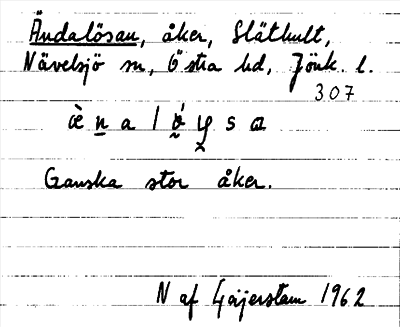 Ändalösan, åker, Slätkult,
Nävelsjö sn, Östra hd, Jönk. l.
307
Ganska stor åker.
N af Geijerstam 1962